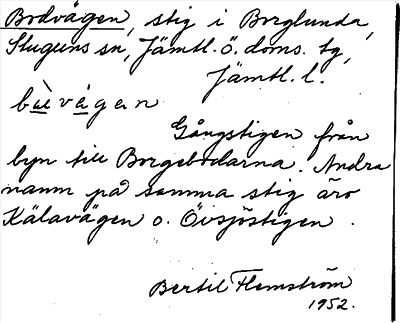 Bodvägen, stig i Borglunda,
Stuguns sn, Jämtl. ö. doms. tg,
Jämtl. l.
Gångstigen från
byn till Borgebodarna. Andra
namn på samma stig äro
Kälavägen o. Övsjöstigen.
Bertil Flemström
1952.